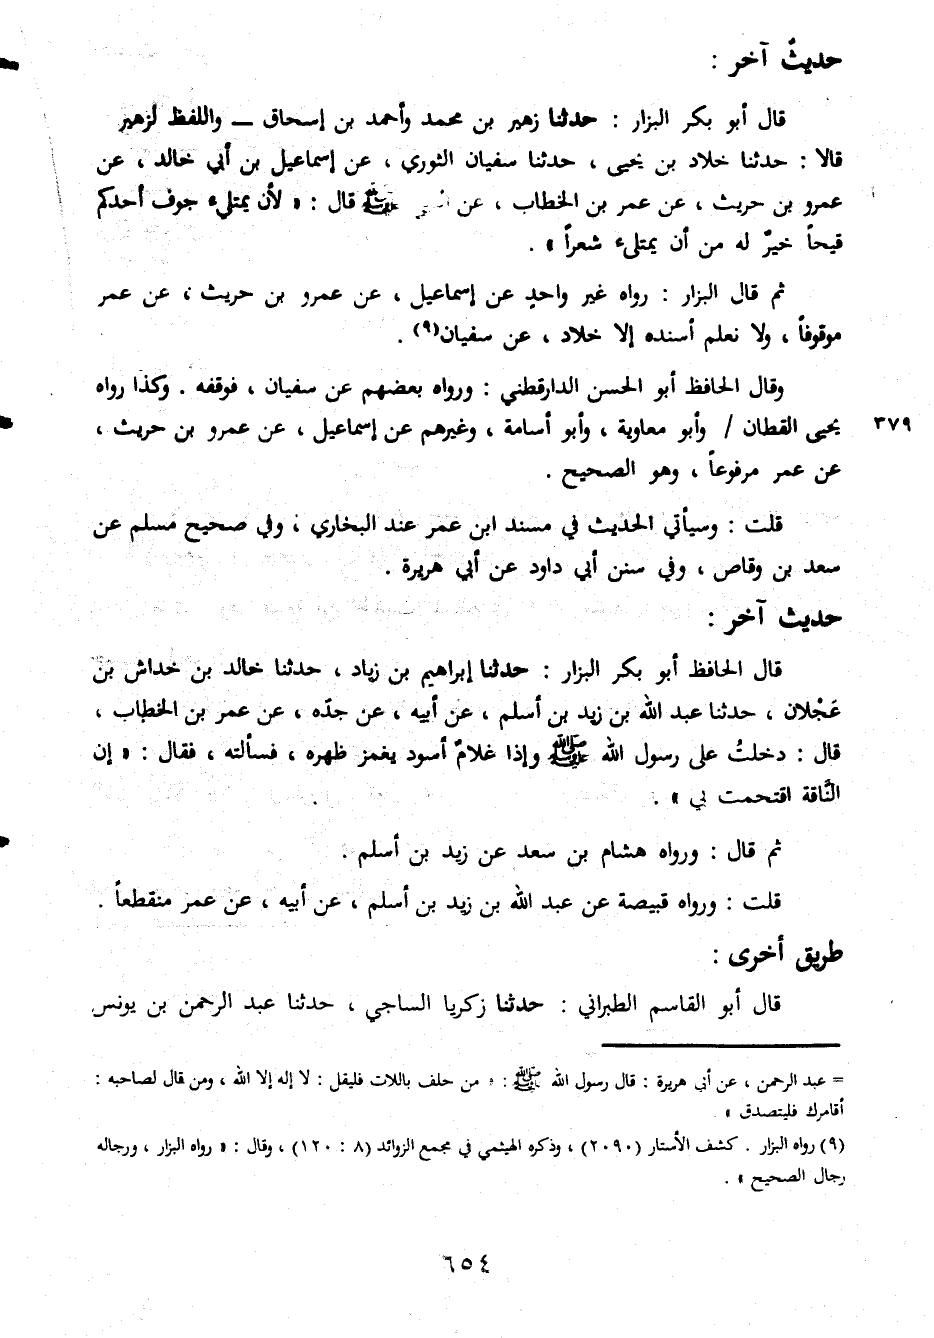 حديثٌ آخر :
قال أبو بكر البزار : حدثنا زهير بن محمد وأحمد بن إسحاق ــ واللفظ لزهير
قالا : حدثنا خلاد بن يحيى ، حدثنا سفيان الثوري ، عن إسماعيل بن أبي خالد ، عن
عمرو بن حريث ، عن عمر بن الخطاب ، عن ﷺ قال : « لأن يمتليء جوف أحدكم
قيحاً خيرٌ له من أن يمتليء شعراً » .
ثم قال البزار : رواه غير واحدٍ عن إسماعيل ، عن عمرو بن حريث ، عن عمر
موقوفاً ، ولا نعلم أسنده إلا خلاد ، عن سفيان(٩) .
وقال الحافظ أبو الحسن الدارقطني : ورواه بعضهم عن سفيان ، فوقفه . وكذا رواه
يحيى القطان / وأبو معاوية ، وأبو أسامة ، وغيرهم عن إسماعيل ، عن عمرو بن حريث ،
٣٧٩
عن عمر مرفوعاً ، وهو الصحيح .
قلت : وسيأتي الحديث في مسند ابن عمر عند البخاري ، وفي صحيح مسلم عن
سعد بن وقاص ، وفي سنن أبي داود عن أبي هريرة .
حديث آخر :
قال الحافظ أبو بكر البزار : حدثنا إبراهيم بن زياد ، حدثنا خالد بن خداش بن
عَجْلان ، حدثنا عبد الله بن زيد بن أسلم ، عن أبيه ، عن جدّه ، عن عمر بن الخطاب ،
قال : دخلتُ على رسول الله ﷺ وإذا غلامٌ أسود يغمز ظهره ، فسألته ، فقال : « إن
النَّاقة اقتحمت بي » .
ثم قال : ورواه هشام بن سعد عن زيد بن أسلم .
قلت : ورواه قبيصة عن عبد الله بن زيد بن أسلم ، عن أبيه ، عن عمر منقطعاً .
طريق أخرى :
قال أبو القاسم الطبراني : حدثنا زكريا الساجي ، حدثنا عبد الرحمن بن يونس
= عبد الرحمن ، عن أبي هريرة : قال رسول الله ﷺ : « من حلف باللات فليقل : لا إله إلا الله ، ومن قال لصاحبه :
أقامرك فليتصدق » .
(٩) رواه البزار . كشف الأستار (٢٠٩٠) ، وذكره الهيثمي في مجمع الزوائد (٨ : ١٢٠) ، وقال : « رواه البزار ، ورجاله
رجال الصحيح » .
٦٥٤